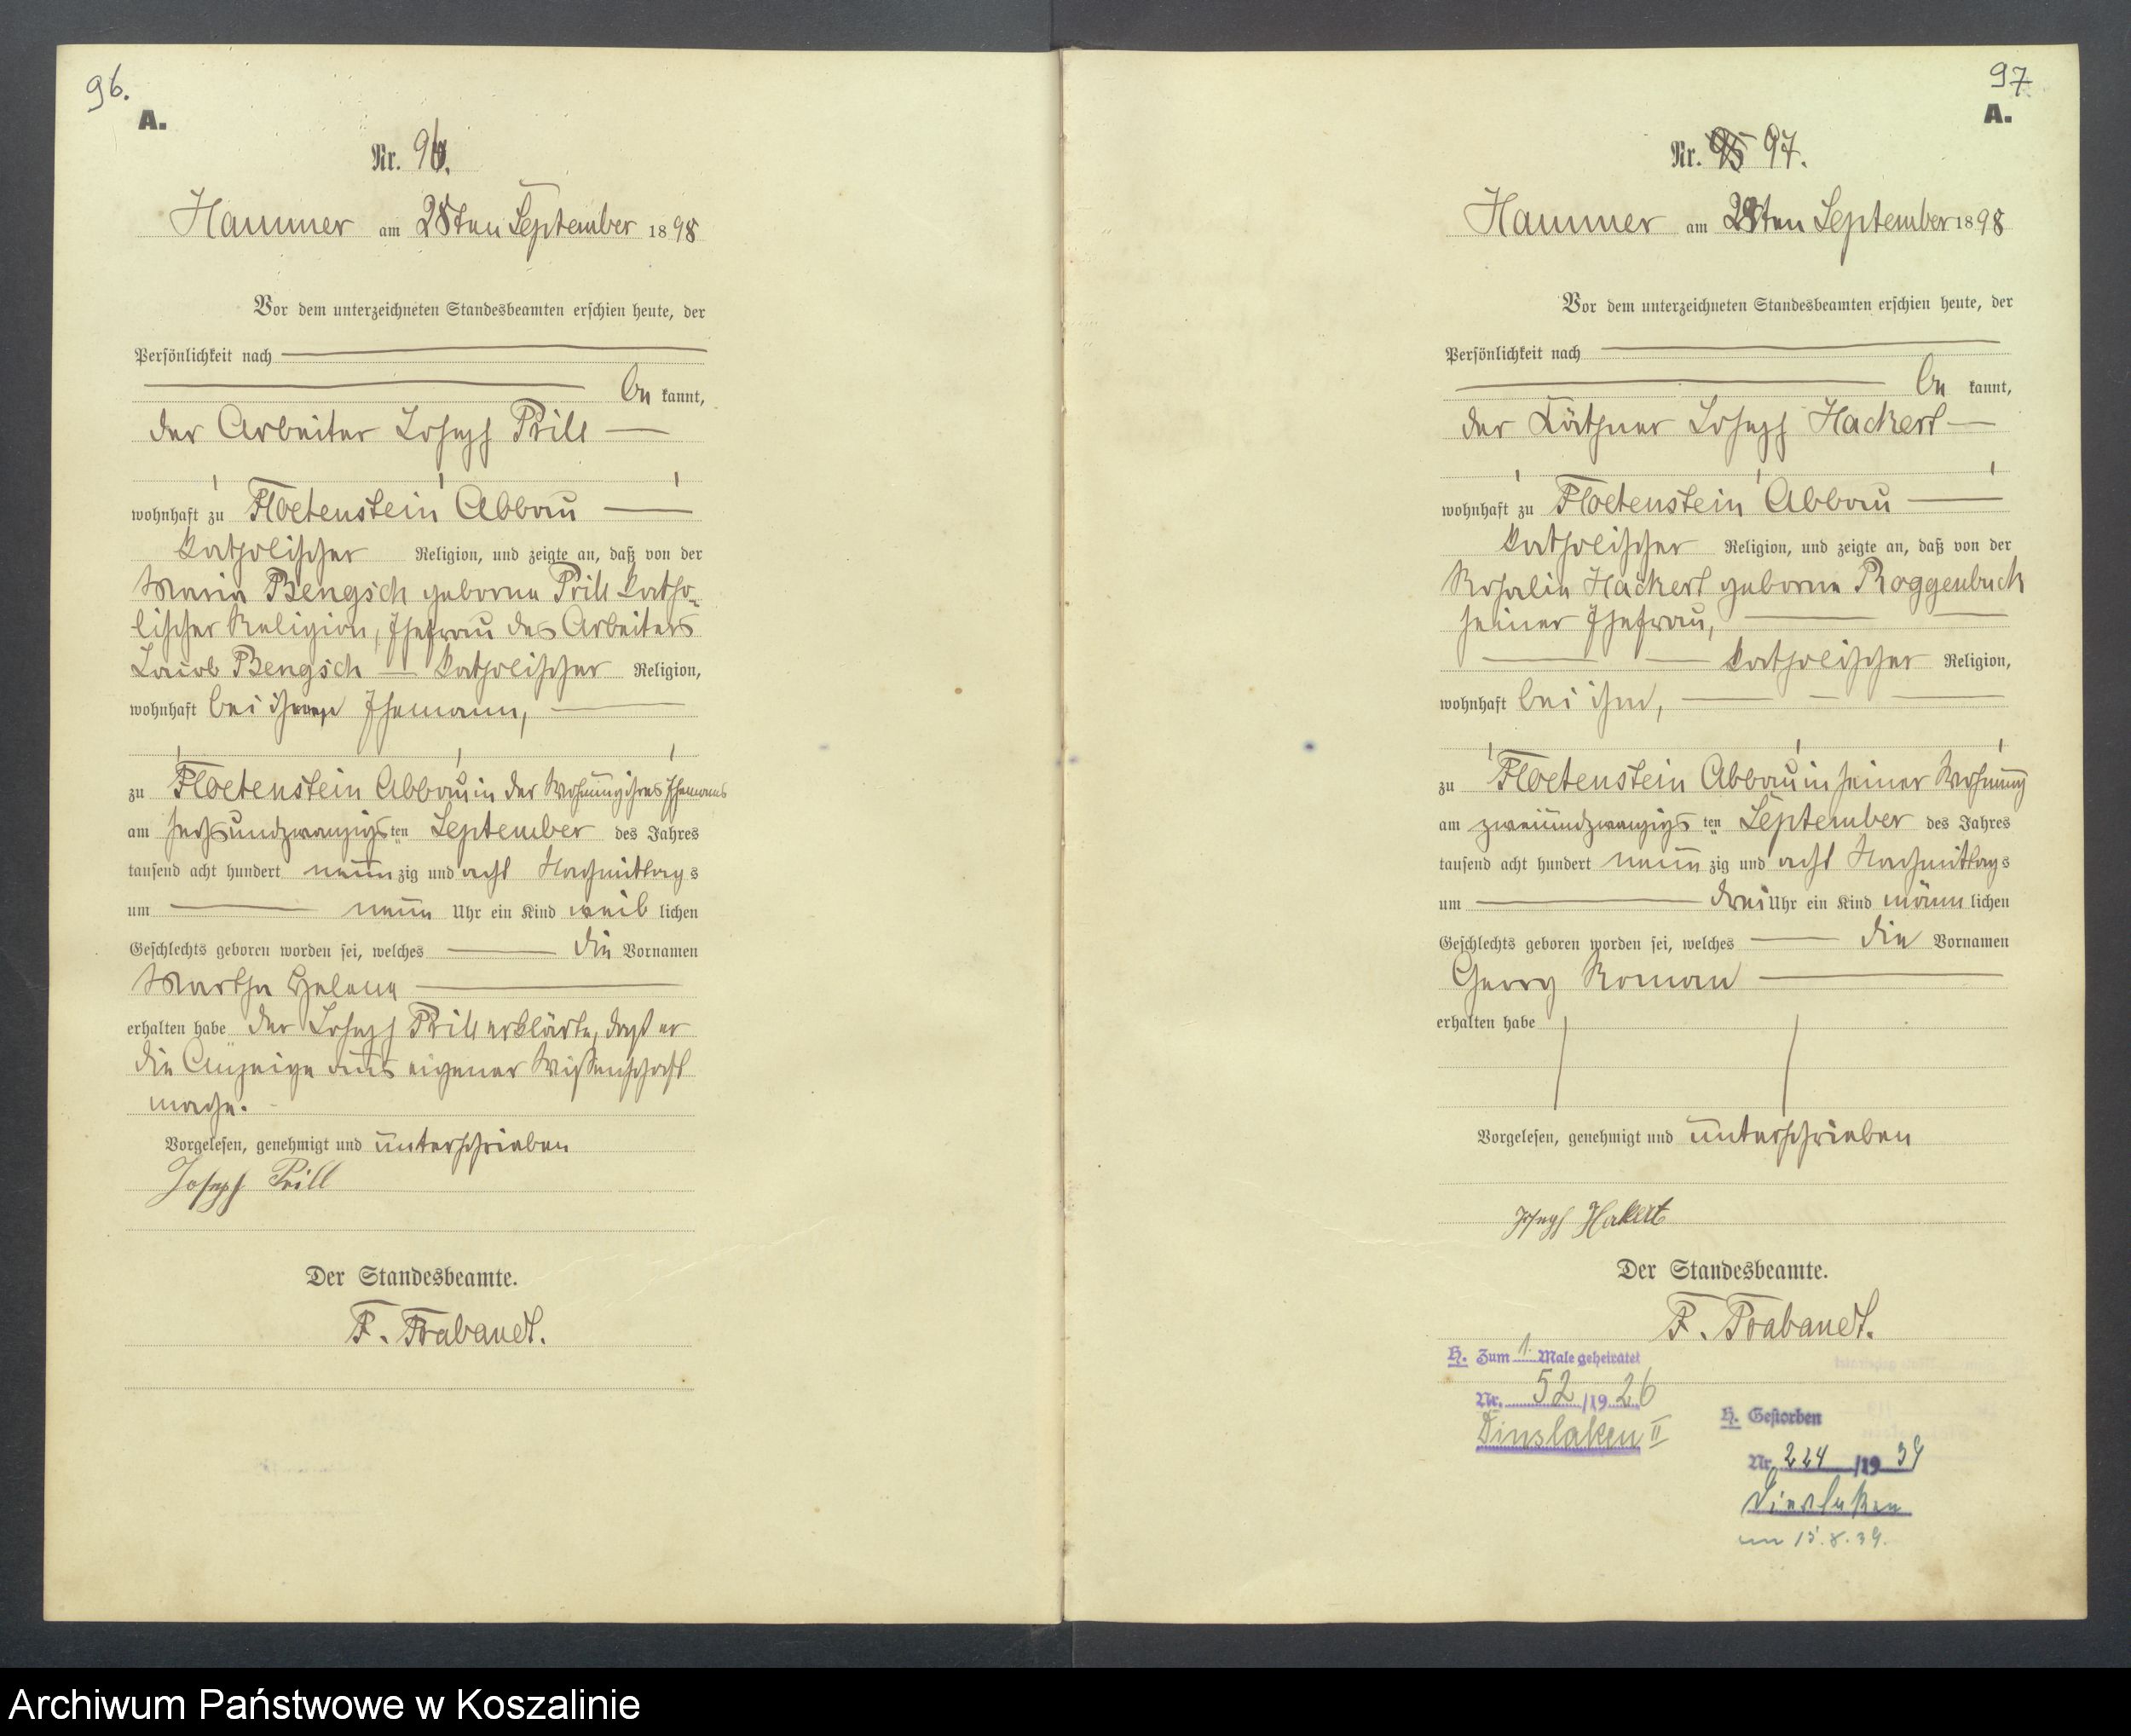 96.
A.
Nr. 96.
Hammer am 28ten September 1898
Vor dem unterzeichneten Standesbeamten erschien heute, der
Persönlichkeit nach
be kannt,
der Arbeiter Joseph Prill
wohnhaft zu Floetenstein Abbau
katholischer Religion, und zeigte an, daß von der
Maria Bengsch geborne Prill katho-
lischer Religion, Ehefrau des Arbeiters
Jacob Bengsch katholischer Religion,
wohnhaft bei ihrem Ehemann,
zu Floetenstein Abbau in der Wohnung ihres Ehemanns
am sechsundzwanzigs ten September des Jahres
tausend acht hundert neun zig und acht Nachmittags
um neun Uhr ein Kind weib lichen
Geschlechts geboren worden sei, welches die Vornamen
Martha Helena
erhalten habe der Joseph Prill erklärte, daß er
die Anzeige aus eigener Wissenschaft
mache.
Vorgelesen, genehmigt und unterschrieben
Joseph Prill
Der Standesbeamte.
F. Brabandt.
97
A.
Nr. 95 97.
Hammer am 28ten September 1898
Vor dem unterzeichneten Standesbeamten erschien heute, der
Persönlichkeit nach
be kannt,
der Käthner Joseph Hackert
wohnhaft zu Floetenstein Abbau
katholischer Religion, und zeigte an, daß von der
Rosalie Hackert geborne Roggenbuck
seiner Ehefrau,
katholischer Religion,
wohnhaft bei ihm,
zu Floetenstein Abbau in seiner Wohnung
am zweiundzwanzigs ten September des Jahres
tausend acht hundert neun zig und acht Nachmittags
um drei Uhr ein Kind männ lichen
Geschlechts geboren worden sei, welches die Vornamen
Georg Roman
erhalten habe
Vorgelesen, genehmigt und unterschrieben
Joseph Hakert
Der Standesbeamte.
F. Brabandt.
H. Zum 1. Male geheiratet
Nr. 52/1926
Dinslaken II
H. Gestorben
Nr. 224/1939
Dinslaken
am 15.8.39.
Archiwum Państwowe w Koszalinie